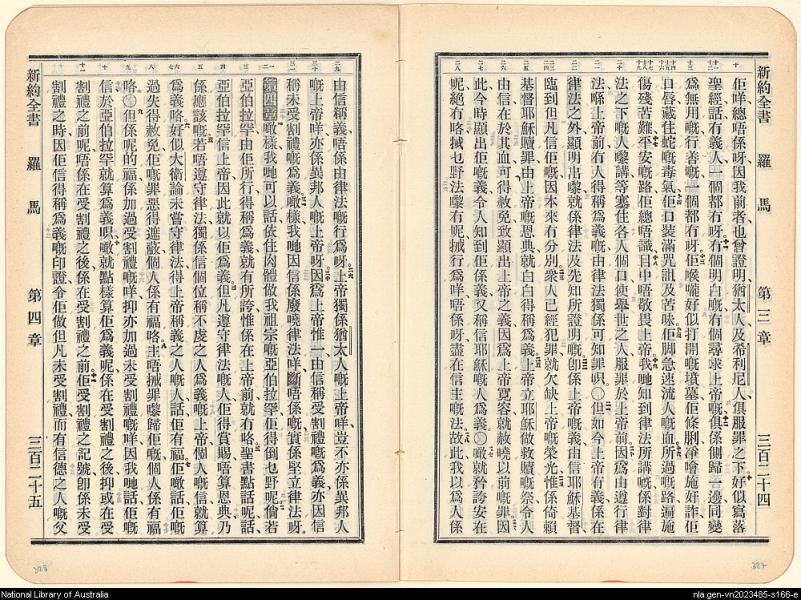 新約全書 羅馬 第三章 三百二十四
佢咩總唔係呀因我前者也曾證明猶太人及希利尼人俱服罪之下好似寫落
聖經話冇義人一個都冇呀冇個明白嘅冇個尋求上帝嘅俱係側歸一邊同變
爲無用嘅行善嘅一個都冇呀佢喉嚨好似打開嘅墳墓佢條脷凈噲施奸詐佢
口唇藏住蛇嘅毒氣佢口裝滿咒詛及苦味佢脚急速流人嘅血所過嘅路遍施
傷殘苦難平安嘅路佢總唔識目中唔敬畏上帝我哋知到律法所講嘅係對律
法之下嘅人嚟講等塞住各人個口使舉世之人服罪於上帝前因爲由遵行律
法喺上帝前冇人得稱爲義嘅由律法獨係可知罪啫〇但如今上帝有義係在
律法之外顯明出嚟就係律法及先知所證明嘅卽係上帝嘅義由信耶穌基督
臨到但凡信佢嘅因本來冇分別衆人已經犯罪就欠缺上帝嘅榮光惟係倚賴
基督耶穌贖罪由上帝嘅恩典就白白得稱爲義上帝立耶穌做救贖嘅祭令人
由信在於其血可得赦免致顯出上帝之義因爲上帝寬容就赦曉以前嘅罪因
此今時顯出佢嘅義令人知到佢係義又稱信耶穌嘅人爲義〇噉就矜誇安在
呢絕冇咯搣乜野法嚟冇呢搣行爲咩唔係呀盡在信主嘅法故此我以爲人係
新約全書 羅馬 第四章 三百二十五
由信稱義唔係由律法嘅行爲呀上帝獨係猶太人嘅上帝咩豈不亦係異邦人
嘅上帝咩亦係異邦人嘅上帝呀因爲上帝惟一由信稱受割禮嘅爲義亦因信
稱未受割禮嘅爲義噉樣我哋因信係廢曉律法咩斷唔係嘅實係堅立律法呀
第四章噉樣我哋可以話依住肉體做我祖宗嘅亞伯拉罕係得倒乜野呢倘若
亞伯拉罕由佢所行得稱爲義就有所誇惟係在上帝前就冇咯聖書點話呢話
亞伯拉罕信上帝因此就以佢爲義但凡遵守律法嘅人佢得賞賜唔算恩典乃
係應該嘅若唔遵守律法獨係信個位稱不虔之人爲義嘅上帝個人嘅信就算
爲義咯好似大衞論未嘗守律法得上帝稱義之人嘅人話佢有福佢噉話佢嘅
過失得赦免佢嘅罪惡得遮蔽個人係有福咯主唔搣罪嚟歸佢嘅個人係有福
咯〇但係呢的福係加過受割禮嘅咩抑亦加過未受割禮嘅咩因我哋話佢嘅
信於亞伯拉罕就算爲義啫噉就點樣算佢爲義呢係在受割禮之後抑或在受
割禮之前呢唔係在受割禮之後係在受割禮之前佢受割禮之記號卽係未受
割禮之時因佢信得稱爲義嘅印證令佢做但凡未受割禮而有信德之人嘅父
National Library of Australia
nla.gen-vn2023485-s166-e